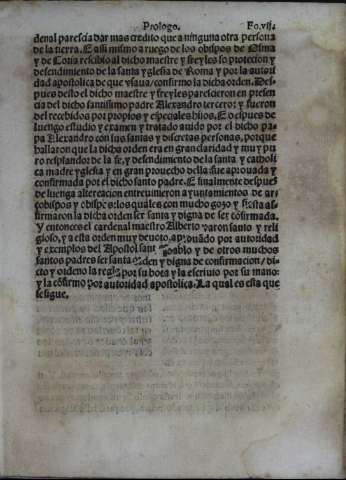 Prologo. Fo.vij.
denal parescia dar mas credito que a ninguna otra persona
de la tierra. E assi mismo a ruego de los obispos de Osma
y de Coria rescibio al dicho maestre y freyles so protecion y
defendimiento de la santa yglesia de Roma y por la autori
dad apostolica de que vsaua/confirmo la dicha orden. Des
pues desto el dicho maestre y freyles parescieron en presen
cia del dicho santissimo padre Alexandro tercero: y fueron
del recebidos por propios y especiales hijos. E despues de
luengo estudio y examen y tratado auido por el dicho pa
pa Alexandro con sus santas y discretas personas, porque
hallaron que la dicha orden era en gran claridad y muy pu
ro resplandor de la fe, y defendimiento de la santa y catholi
ca madre yglesia y en gran prouecho della fue aprouada y
confirmada por el dicho santo padre. E finalmente despues
de luenga altercacion entreuinieron ayuntamientos de arç
obispos y obispos: los quales con mucho gozo y fiesta afi
firmaron la dicha orden ser santa y digna de ser cõfirmada.
Y entonces el cardenal maestro Alberto varon santo y reli
gioso, y a esta orden muy deuoto, aprouado por autoridad
y exemplos del Apostol sant pablo y de otros muchos
santos padres ser santa orden y digna de confirmacion/di
cto y ordeno la regla por su boca y la escriuio por su mano:
y la cõfirmo por autoridad apostolica. La qual es esta que
se sigue.